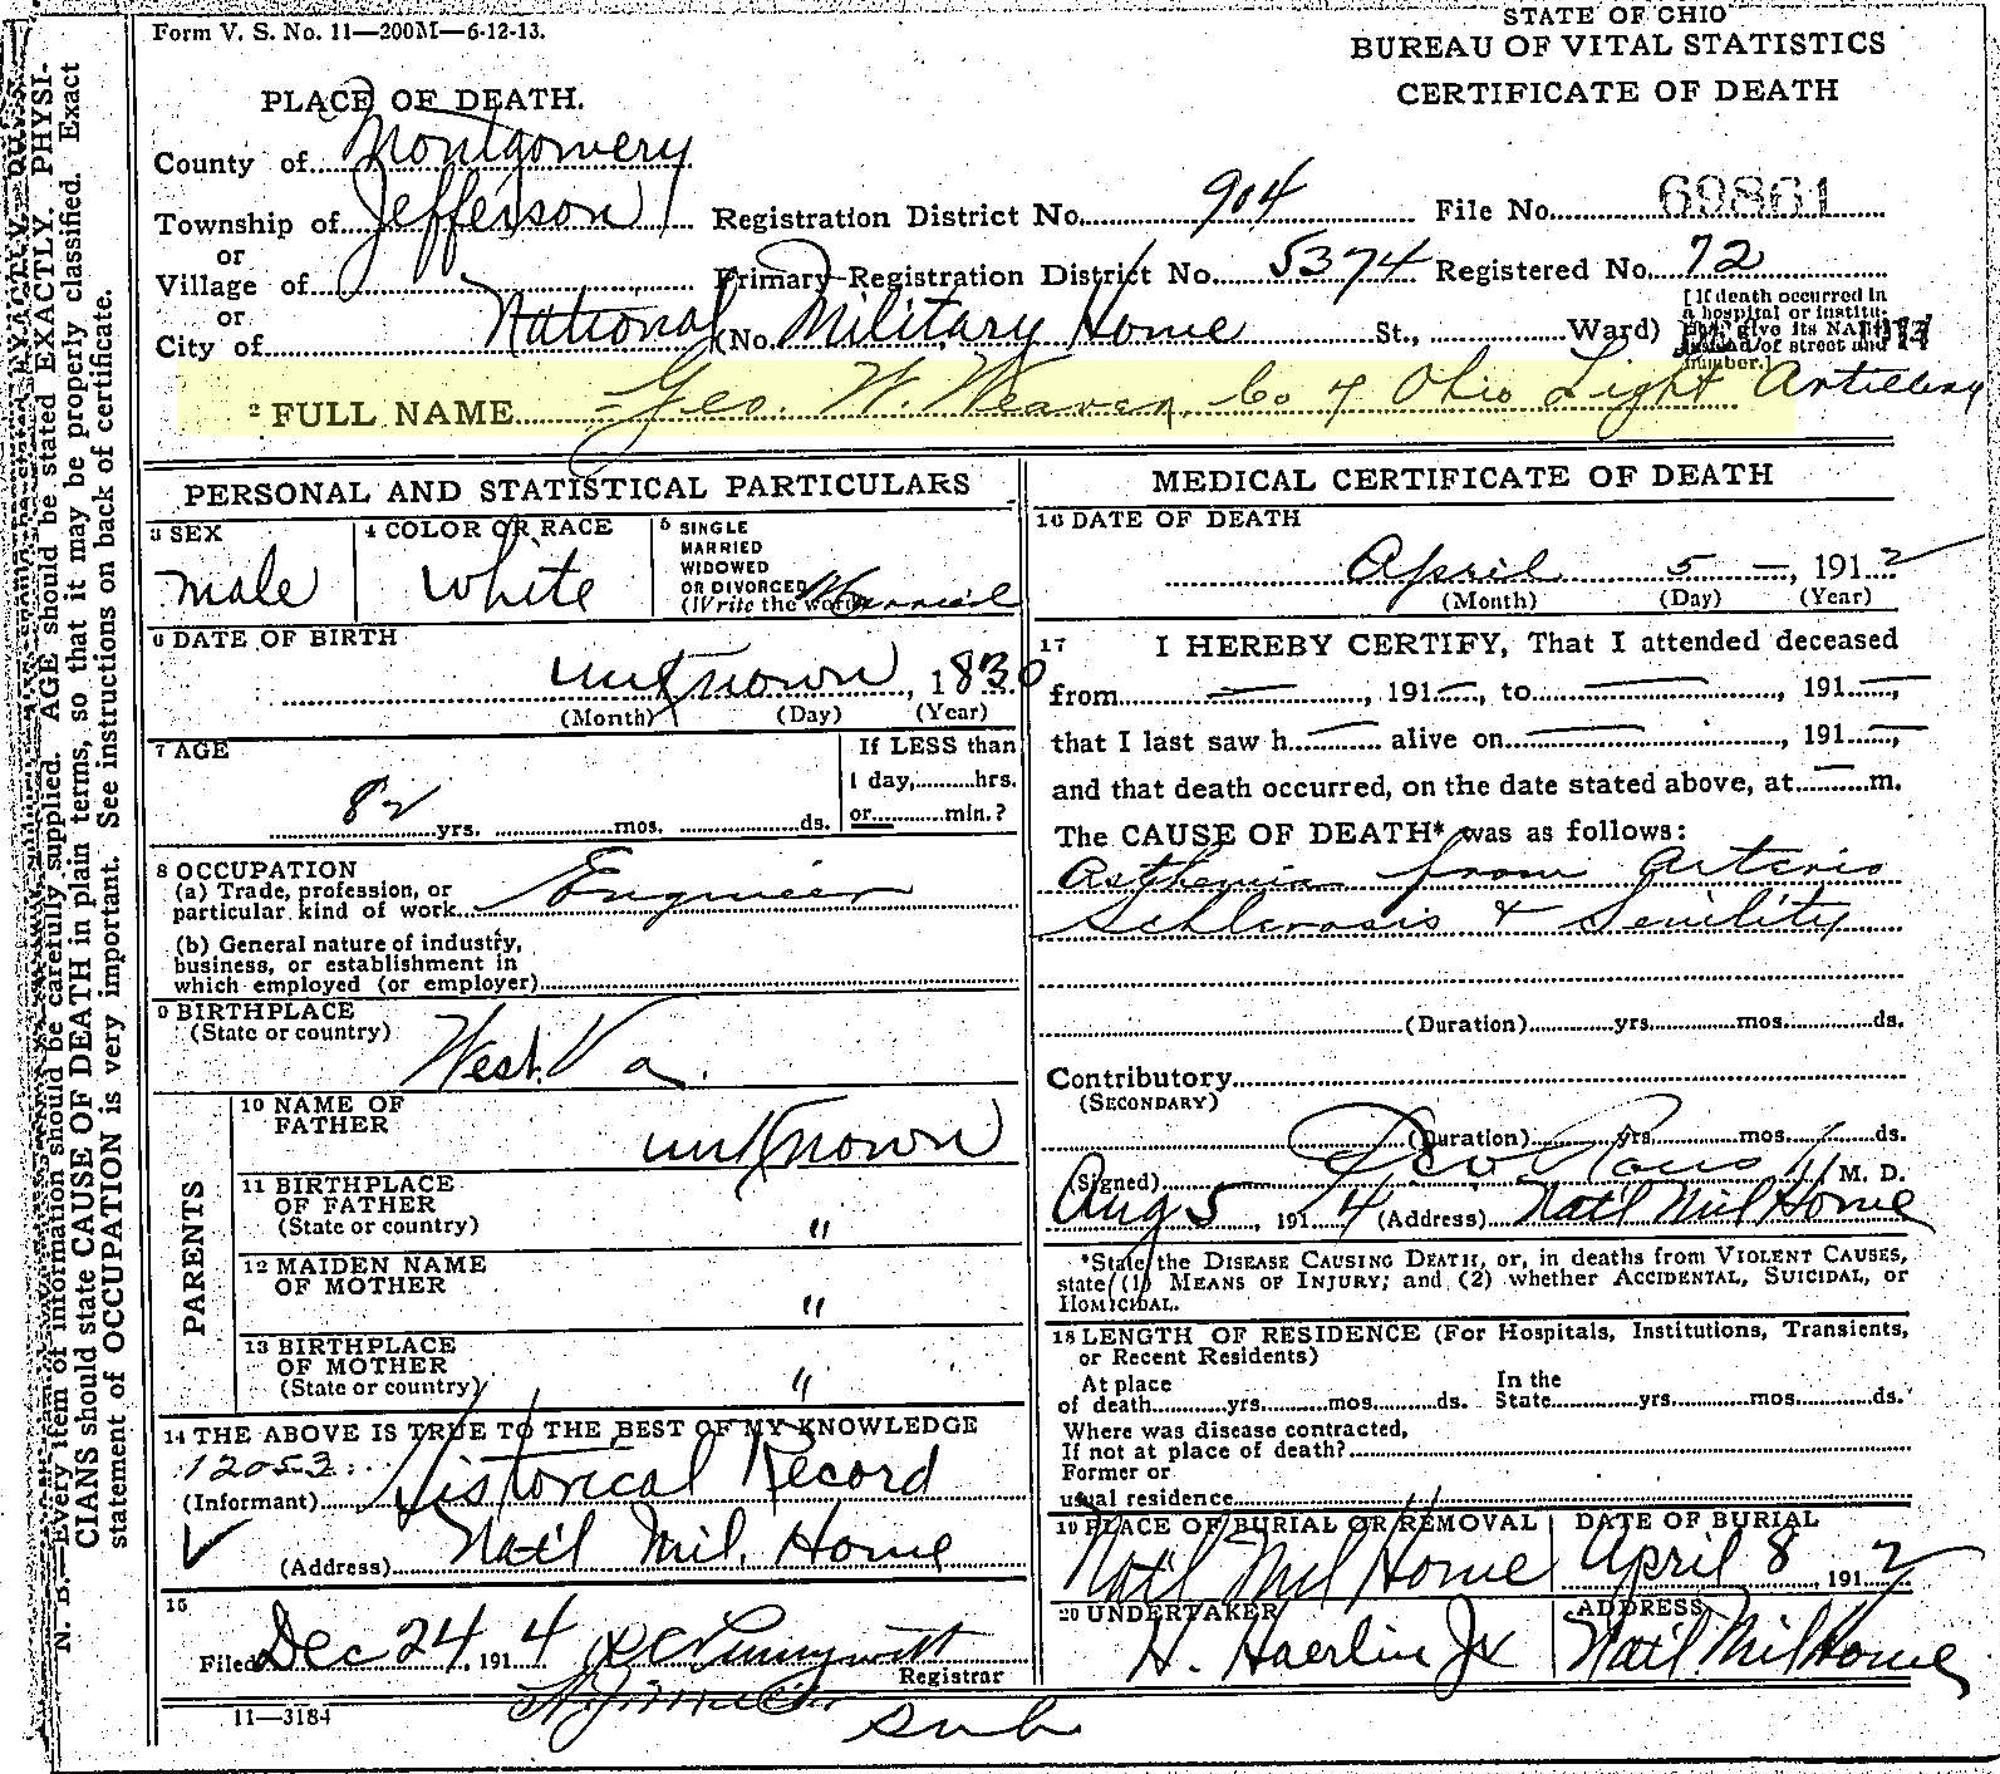 Form V. S. No. 11—200M—6-12-13.
STATE OF OHIO
BUREAU OF VITAL STATISTICS
CERTIFICATE OF DEATH
PLACE OF DEATH.
County of Montgomery
Township of Jefferson Registration District No. 904 File No. 69861
or
Village of Primary Registration District No. 5374 Registered No. 72
or
City of National (No. Military Home St., Ward)
[If death occurred in
a hospital or institu-
give its NAME
of street and
number.]
2 FULL NAME Geo. W. Weaver, Co 4 Ohio Light Artillery
PERSONAL AND STATISTICAL PARTICULARS
3 SEX
male
4 COLOR OR RACE
White
5 SINGLE
MARRIED
WIDOWED
OR DIVORCED
(Write the word) Married
6 DATE OF BIRTH
unknown, 1830
(Month) (Day) (Year)
7 AGE
82 yrs. mos. ds.
If LESS than
1 day, hrs.
or min.?
8 OCCUPATION
(a) Trade, profession, or
particular kind of work Engineer
(b) General nature of industry,
business, or establishment in
which employed (or employer)
9 BIRTHPLACE
(State or country)
West. Va.
PARENTS
10 NAME OF
FATHER
unknown
11 BIRTHPLACE
OF FATHER
(State or country) "
12 MAIDEN NAME
OF MOTHER
"
13 BIRTHPLACE
OF MOTHER
(State or country) "
14 THE ABOVE IS TRUE TO THE BEST OF MY KNOWLEDGE
12053
(Informant) Historical Record
(Address) Nat'l Mil. Home
15
Filed Dec 24, 1914
Registrar
sub
11—3184
MEDICAL CERTIFICATE OF DEATH
16 DATE OF DEATH
April 5 —, 1912
(Month) (Day) (Year)
17 I HEREBY CERTIFY, That I attended deceased
from —, 191—, to —, 191—,
that I last saw h — alive on —, 191—,
and that death occurred, on the date stated above, at — m.
The CAUSE OF DEATH* was as follows:
Asthenia from Arterio
Schlerosis & Senility
(Duration) yrs. mos. ds.
Contributory
(SECONDARY)
(Duration) yrs. mos. ds.
(Signed) M. D.
Aug 5, 1914 (Address) Nat'l Mil Home
*State the DISEASE CAUSING DEATH, or, in deaths from VIOLENT CAUSES,
state (1) MEANS OF INJURY; and (2) whether ACCIDENTAL, SUICIDAL, or
HOMICIDAL.
18 LENGTH OF RESIDENCE (For Hospitals, Institutions, Transients,
or Recent Residents)
At place
of death yrs. mos. ds.
In the
State yrs. mos. ds.
Where was disease contracted,
If not at place of death?
Former or
usual residence
19 PLACE OF BURIAL OR REMOVAL
Nat'l Mil Home
DATE OF BURIAL
April 8, 1912
20 UNDERTAKER
H. Haerlin Jr
ADDRESS
Nat'l Mil Home
N. B.—Every item of information should be carefully supplied. AGE should be stated EXACTLY. PHYSI-
CIANS should state CAUSE OF DEATH in plain terms, so that it may be properly classified. Exact
statement of OCCUPATION is very important. See instructions on back of certificate.